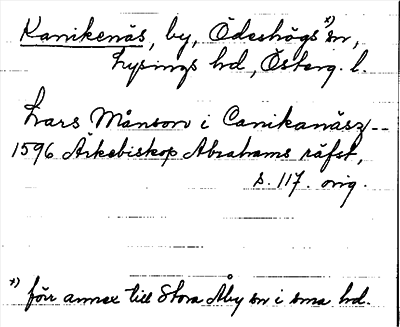 Kanikenäs, by, Ödeshögs *) sn,
Lysings hd, Österg. l.
Lars Månson i Canikanäsz --
1596 Ärkebiskop Abrahams räfst,
s. 117. orig.
*) förr annex till Stora Åby sn i sma hd.